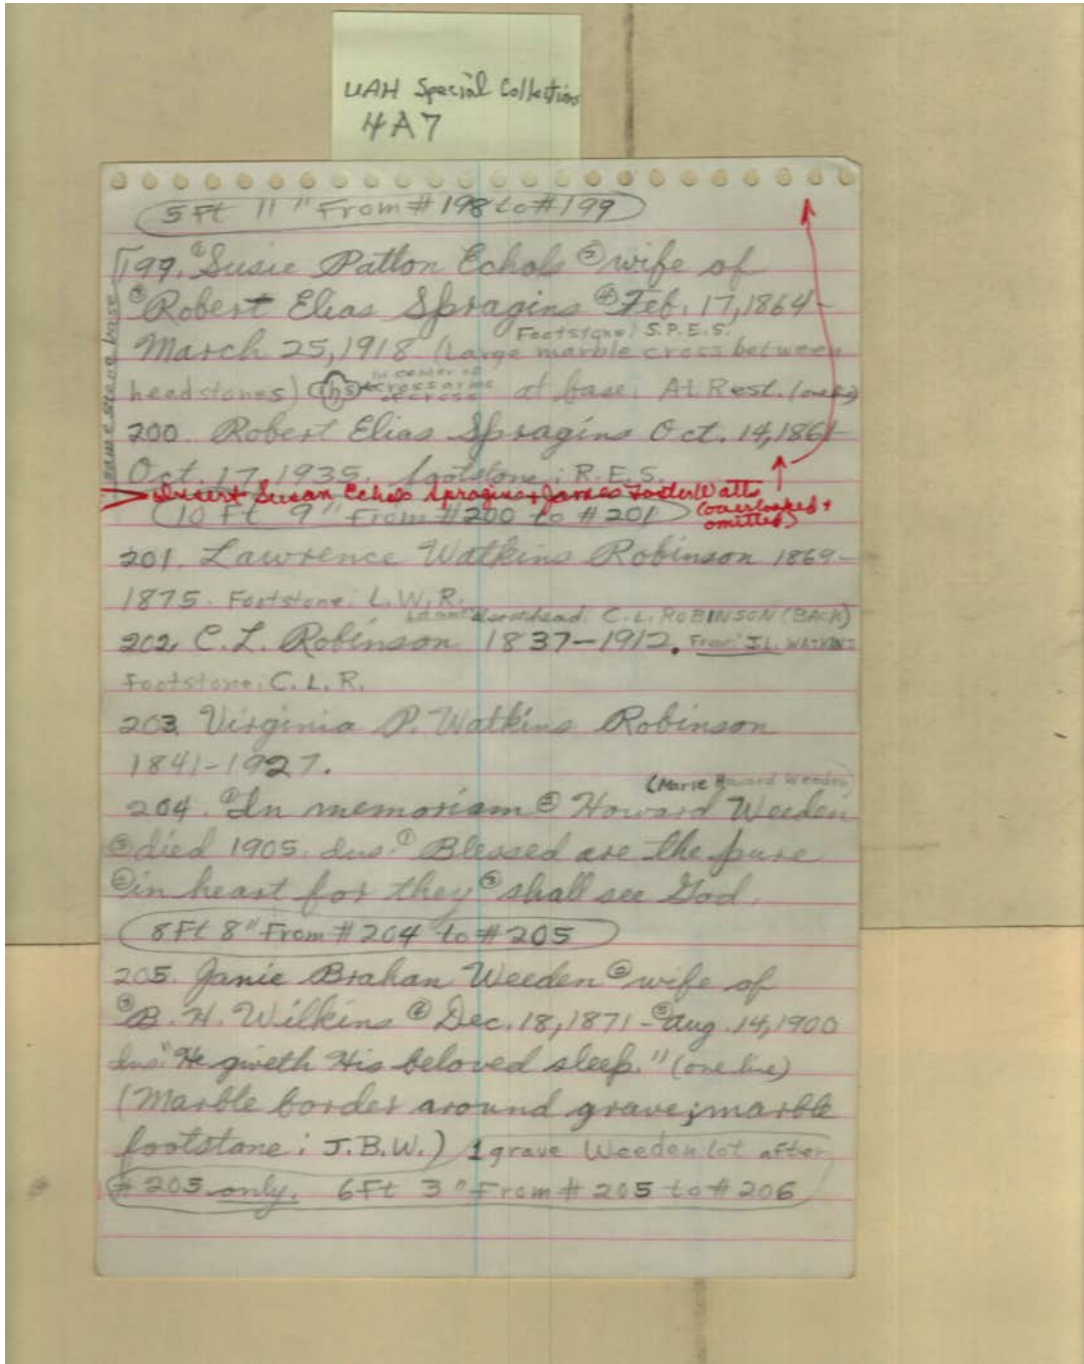 UAH Special Collections
4A7
5 Ft 11" From #198 to #199
199. ① Susie Patton Echols ② wife of
③ Robert Elias Spragins ④ Feb. 17, 1864-
Footstone: S.P.E.S.
March 25, 1918. (Large marble cross between
headstones) ihs in center of crossarms of cross at base: At Rest.
same stone base
200. Robert Elias Spragins Oct. 14, 1861-
Oct. 17, 1935. footstone: R.E.S.
Insert Susan Echols Spragins + James Foster Watts (overlooked + omitted)
10 Ft 9" From #200 to #201
201. Lawrence Watkins Robinson 1869-
1875. Footstone: L.W.R.
C.L. ROBINSON (BACK)
202. C.L. Robinson 1837-1912. Front: J.L. WATKINS
Footstone: C.L.R.
203. Virginia P. Watkins Robinson
1841-1927.
(Marie Howard Weeden)
204. ① In memoriam ② Howard Weeden
③ died 1905. Ins: ① Blessed are the pure
② in heart for they ③ shall see God.
8 Ft 8" From #204 to #205
205. Janie Brahan Weeden ② wife of
③ B.H. Wilkins ④ Dec. 18, 1871-⑤ Aug. 14, 1900
Ins: "He giveth His beloved sleep." (one line)
(Marble border around grave; marble
footstone: J.B.W.) 1 grave Weeden lot after
#205 only. 6 Ft 3" From #205 to #206